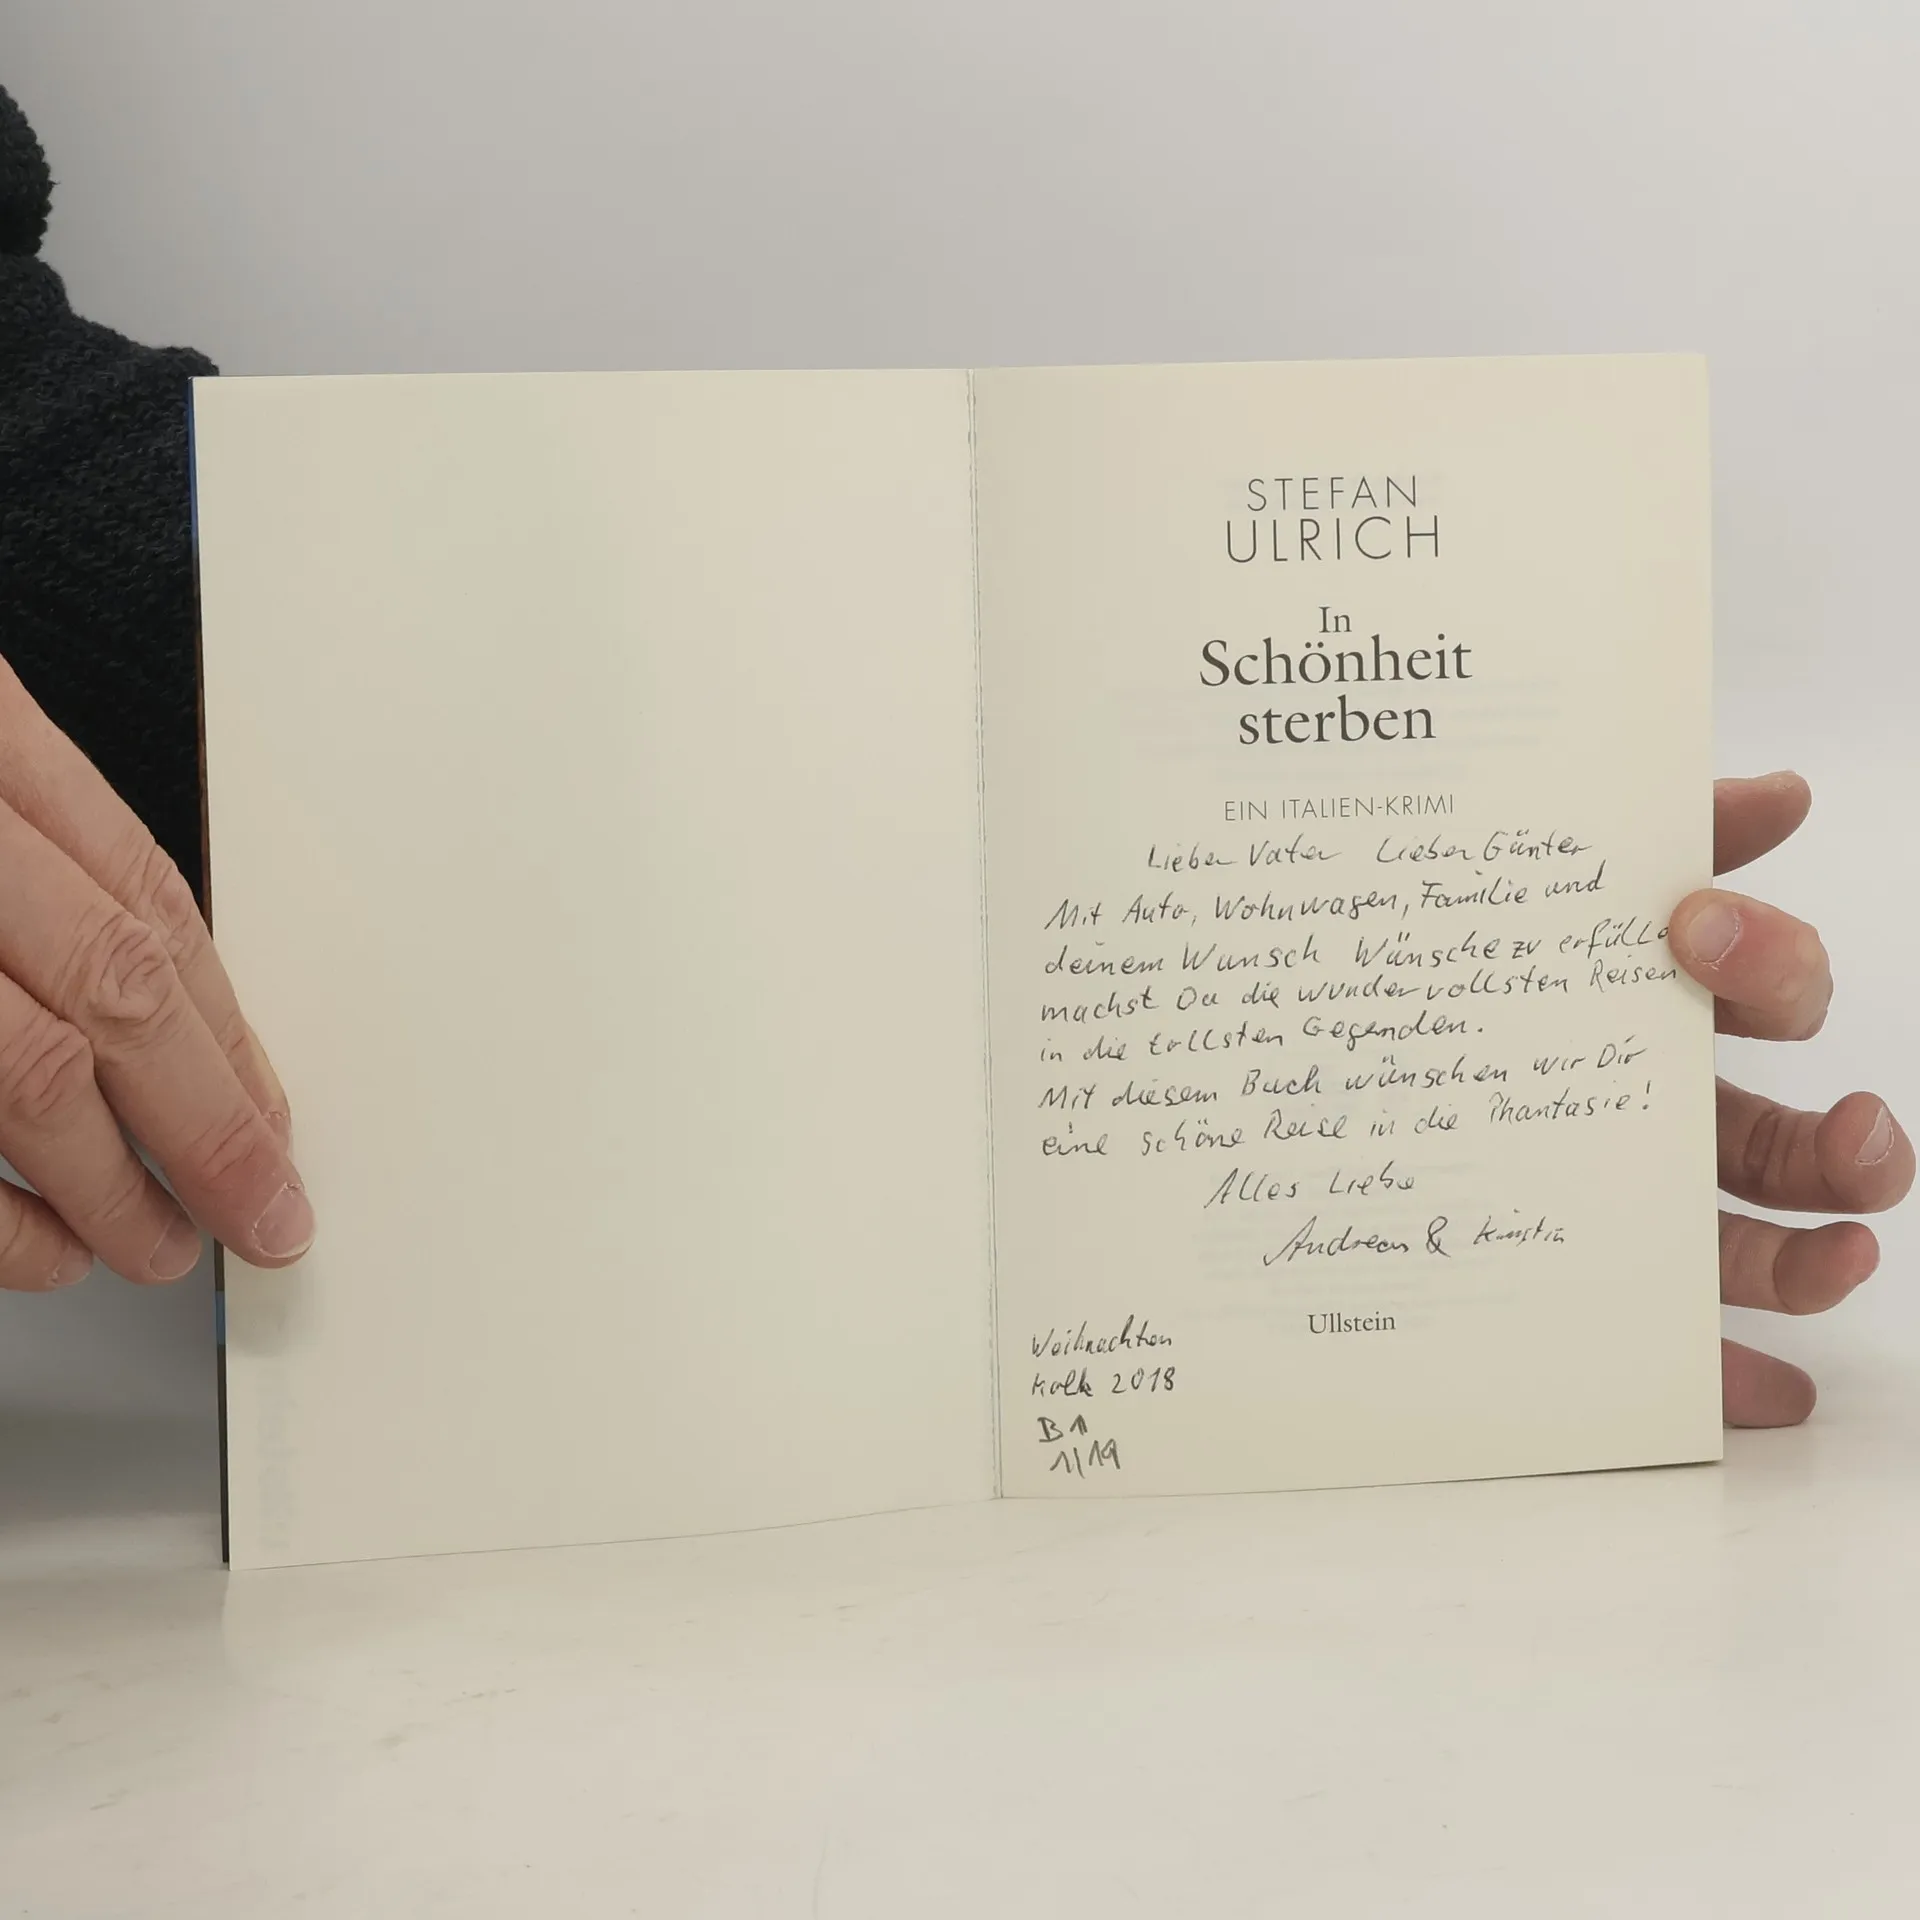 STEFAN
ULRICH
In
Schönheit
sterben
EIN ITALIEN-KRIMI
Lieber Vater Lieber Günter
Mit Auto, Wohnwagen, Familie und
deinem Wunsch Wünsche zu erfülle
machst Du die wundervollsten Reisen
in die tollsten Gegenden.
Mit diesem Buch wünschen wir Dir
eine schöne Reise in die Phantasie!
Alles Liebe
Andreas & Kirstin
Ullstein
Weihnachten
2018
B 1
1/19